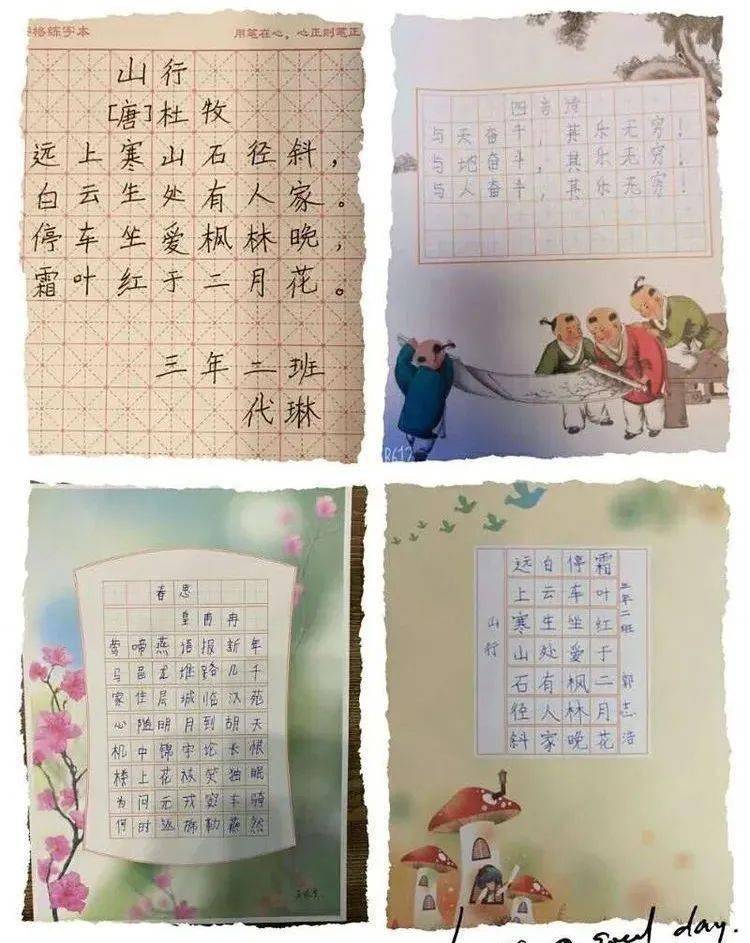 格练字本
用笔在心，心正则笔正
山行
[唐]杜牧
远上寒山石径斜，
白云生处有人家。
停车坐爱枫林晚，
霜叶红于二月花。
三年二班
代琳
四言诗
与天奋斗，其乐无穷！
与地奋斗，其乐无穷，
与人奋斗，其乐无穷！
春思
皇甫冉
莺啼燕语报新年
马邑龙堆路几千
家住层城临汉苑
心随明月到胡天
机中锦字论长恨
楼上花枝笑独眠
为问元戎窦车骑
何时返旆勒燕然
山行
远上寒山石径斜
白云生处有人家
停车坐爱枫林晚
霜叶红于二月花
三年二班 郭志浩
a good day.